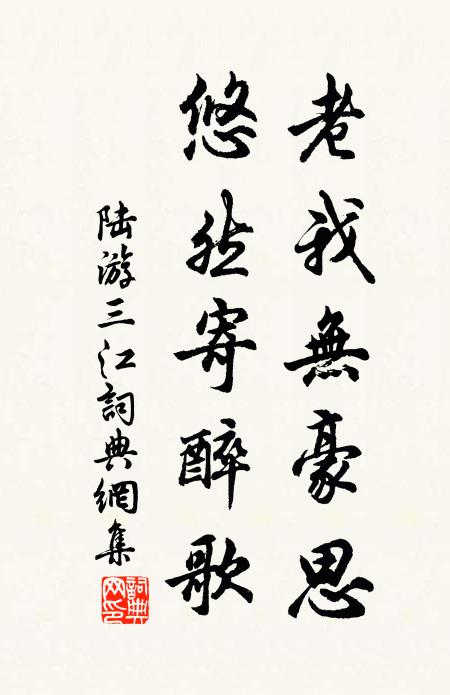 老我無豪思
悠然寄醉歌
陆游三江詞典網集
詞典网印